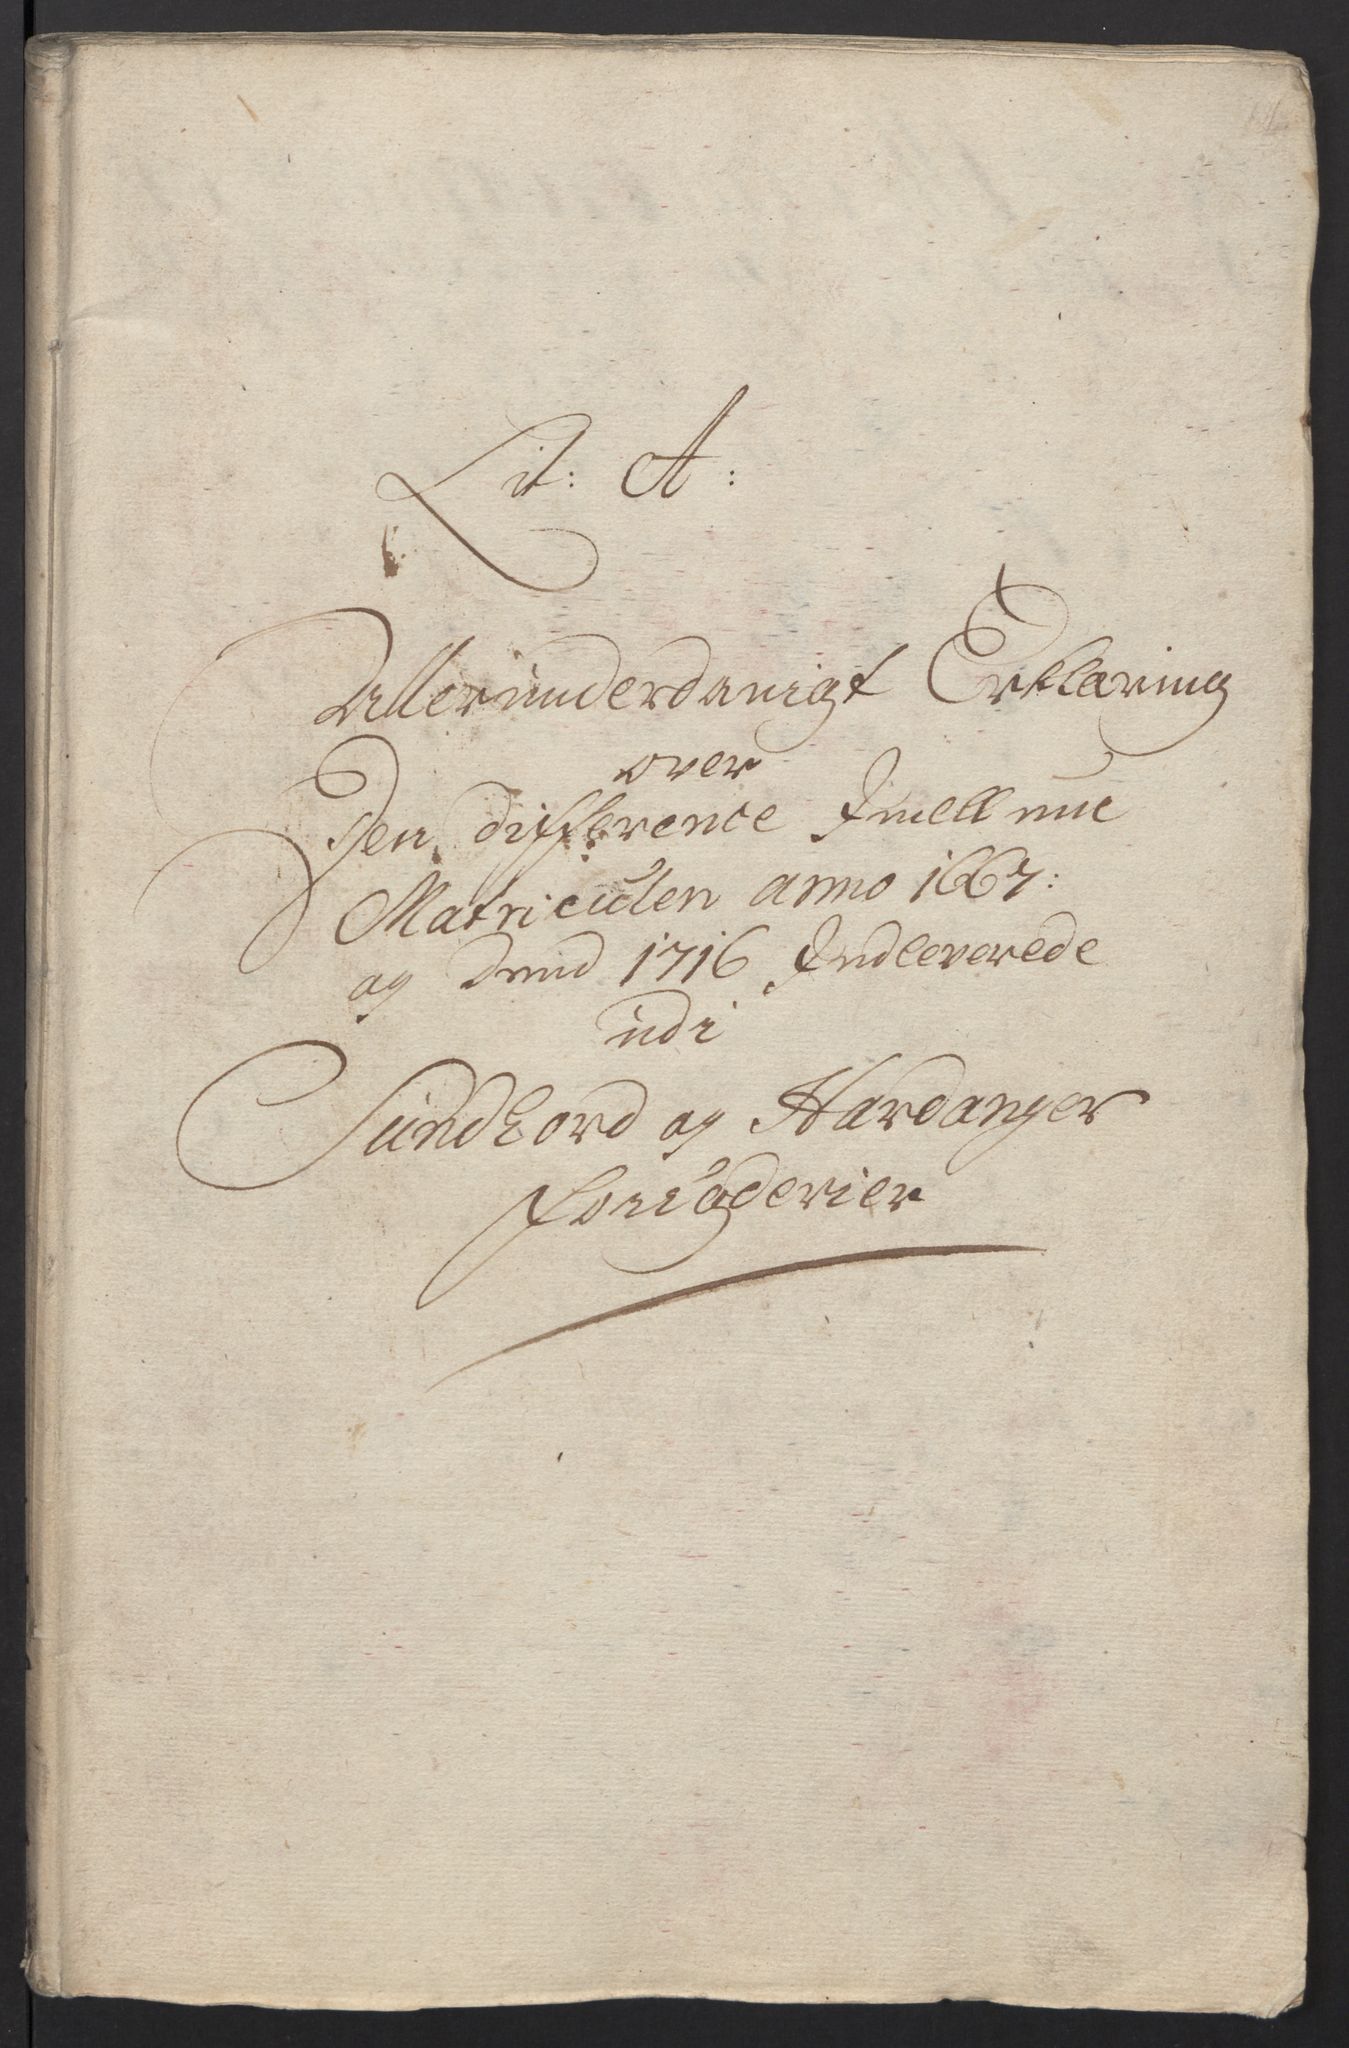 Lit: A:
Allerunderdanigt Erklæring
over
Den difference Imellum
Matriculen anno 1667:
og dend 1716 Indleverede
udi
Sundhord og Hardanger
fougderier